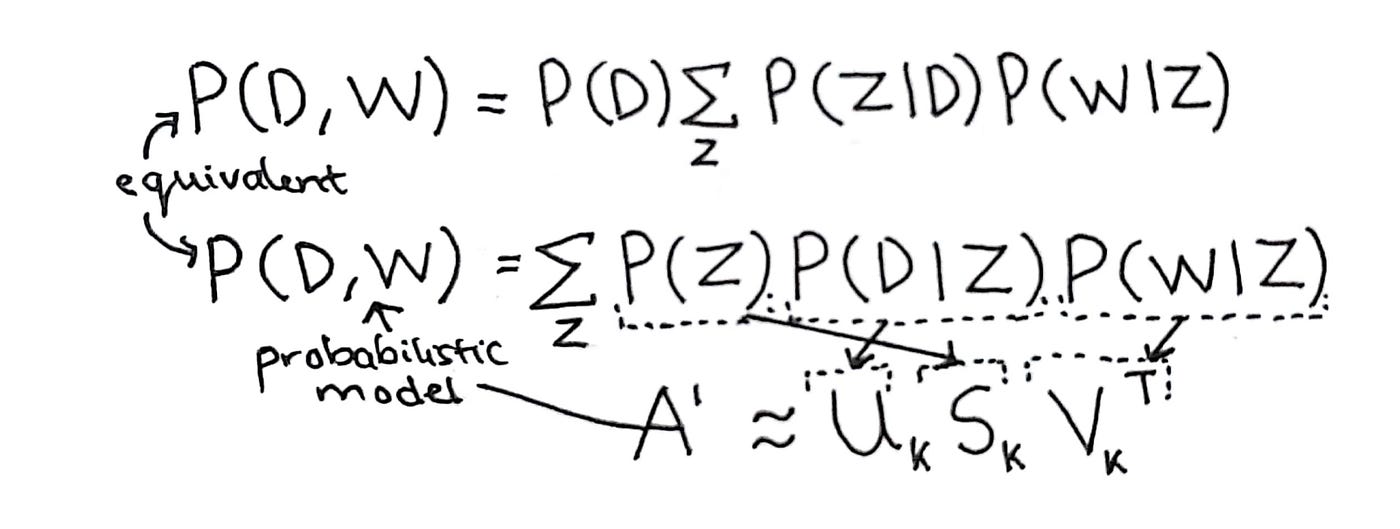 P(D, W) = P(D) ∑ P(Z|D) P(W|Z)
Z
equivalent
P(D, W) = ∑ P(Z) P(D|Z) P(W|Z)
Z
probabilistic
model
A' ≈ U_K S_K V_K^T